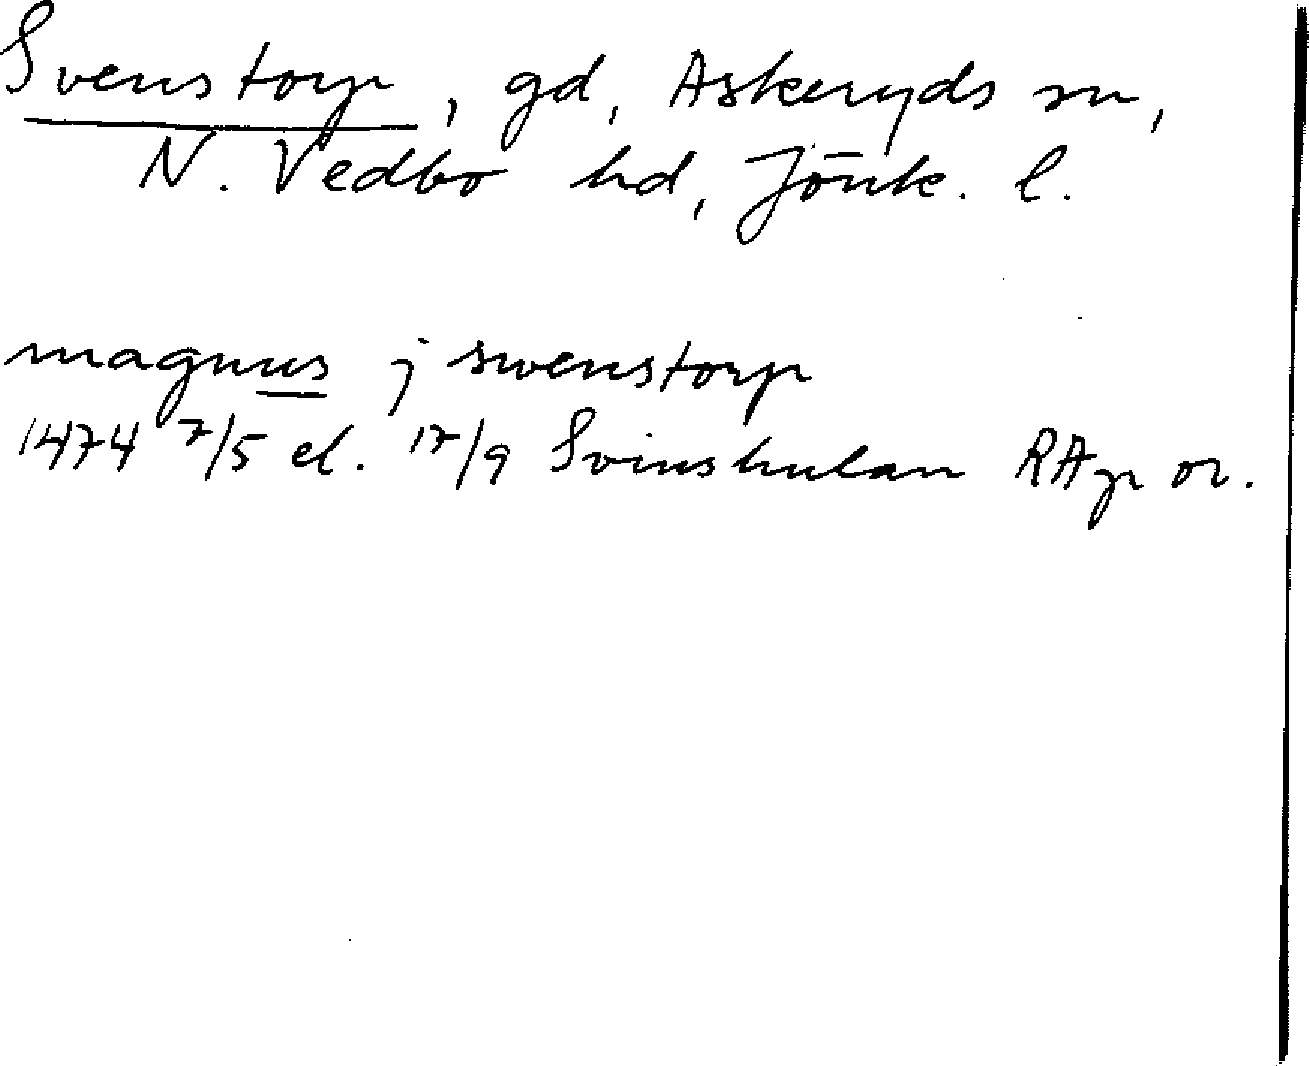 Svenstorp, gd, Askeryds sn,
N. Vedbo hd, Jönk. l.
magnus j swenstorp
1474 7/5 el. 17/9 Svinshulan RAp or.